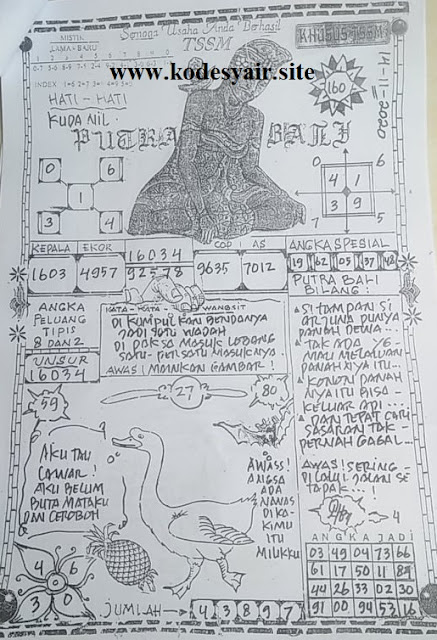 Semoga Usaha Anda Berhasil
TSSM
KHUSUS TSSM
MISTIK
LAMA - BARU
INDEX
www.kodesyair.site
14-11-2020
160
HATI - HATI
KUDA NIL.
PUTRA BALI
0 6
1
3 4
0 6
4 1
3 9
7 5
KEPALA EKOR
1603 4957
16034
92578
COP AS
9635 7012
ANGKA SPESIAL
19 62 05 37 42
PUTRA BALI
BILANG:
ANGKA
PELUANG
TIPIS
8 DAN 2
UNSUR
16034
KATA - KATA WANGSIT
DI KUMPULKAN BENDANYA
JADI SATU WADAH
DI PAKSA MASUK LOBANG
SATU - PERSATU MASUKNYA
AWAS! MAINKAN GAMBAR!
SI TAMPAN SI
ARJUNA DUNYA
PANAH DEWA...
TAK ADA YG
PANAHNYA ITU...
KONON PANAH
NYA ITU BISA
KELUAR API..
DAN TEPAT CARI
SASARAN TAK
PERNAH GAGAL...
AWAS! SERING
59
27
80
AKU TAU
LAWAR!
AKU BELUM
BUTA MATAKU
DAN CEROBOH
AWASS!
ANGSA
ADA
NANAS
DI KA
KIMU
ITU
MILIKKU
4 6
3 0
4
JUMLAH
4 3 8 9 7
ANGKA JADI
03 49 04 73 66
61 17 50 11 89
44 26 33 02 30
91 00 94 53 16